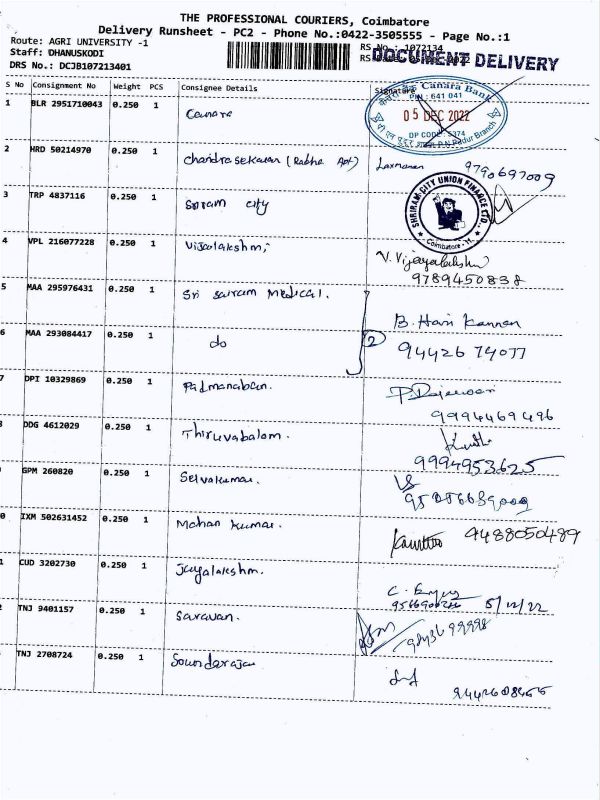 THE PROFESSIONAL COURIERS, Coimbatore
Delivery Runsheet - PC2 - Phone No.:0422-3505555 - Page No.:1
Route: AGRI UNIVERSITY -1
RS No.: 1072134
Staff: DHANUSKODI
DOCUMENT DELIVERY
DRS No.: DCJB107213401
S No Consignment No Weight PCS Consignee Details Signature
1 BLR 2951710043 0.250 1 Canara
Canara Bank
PIN : 641 041
05 DEC 2022
DP CODE
2 HRD 50214970 0.250 1 Chandrasekaran (Radha Apt) Laxmanan 9790697009
3 TRP 4837116 0.250 1 Sriram city
SHRIRAM CITY UNION FINANCE LTD.
Coimbatore
4 VPL 216077228 0.250 1 Vijayalakshmi V. Vijayalakshmi
9789450838
5 MAA 295976431 0.250 1 Sri Sairam Medical.
B. Hari Kannan
6 MAA 293084417 0.250 1 do 2
94426 74077
7 DPI 10329869 0.250 1 Padmanaban.
9994469496
DDG 4612029 0.250 1 Thiruvabalam.
9994953625
GPM 260820 0.250 1 Selvakumar.
0 IXM 502631452 0.250 1 Mohan kumar. 9488050489
1 CUD 3202730 0.250 1 Jayalakshmi.
5/12/22
2 TNJ 9401157 0.250 1 Saravan.
TNJ 2708724 0.250 1 Soundarajan